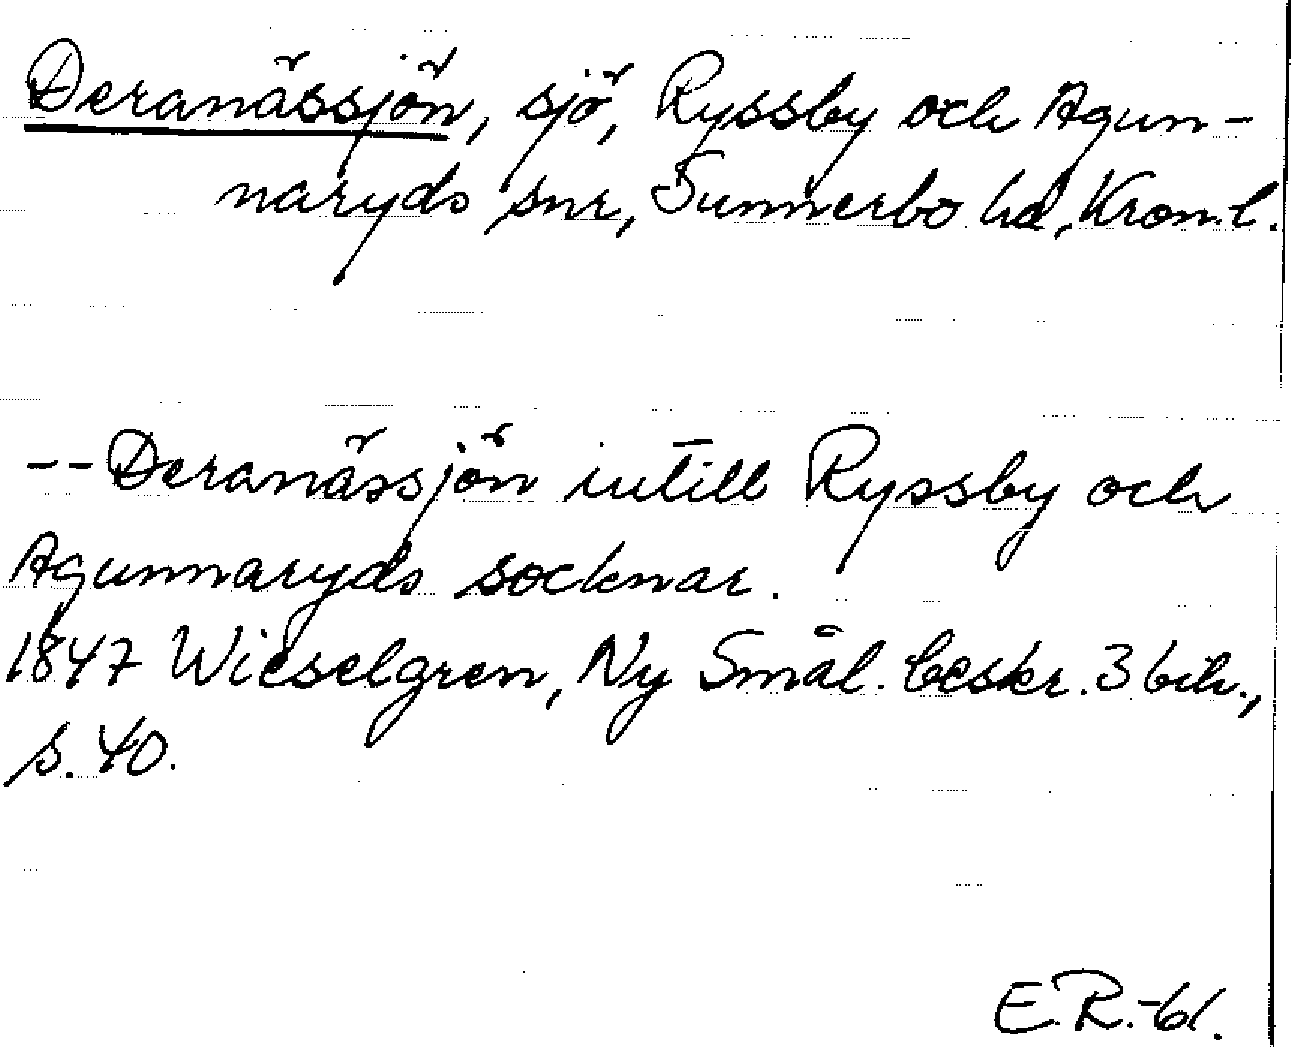 Deranässjön, sjö, Ryssby och Agun-
naryds snr, Sunnerbo hd, Kron.l.
--Deranässjön intill Ryssby och
Agunnaryds socknar.
1847 Wieselgren, Ny Smål. beskr. 3 bih.,
s. 40.
E.R.-61.